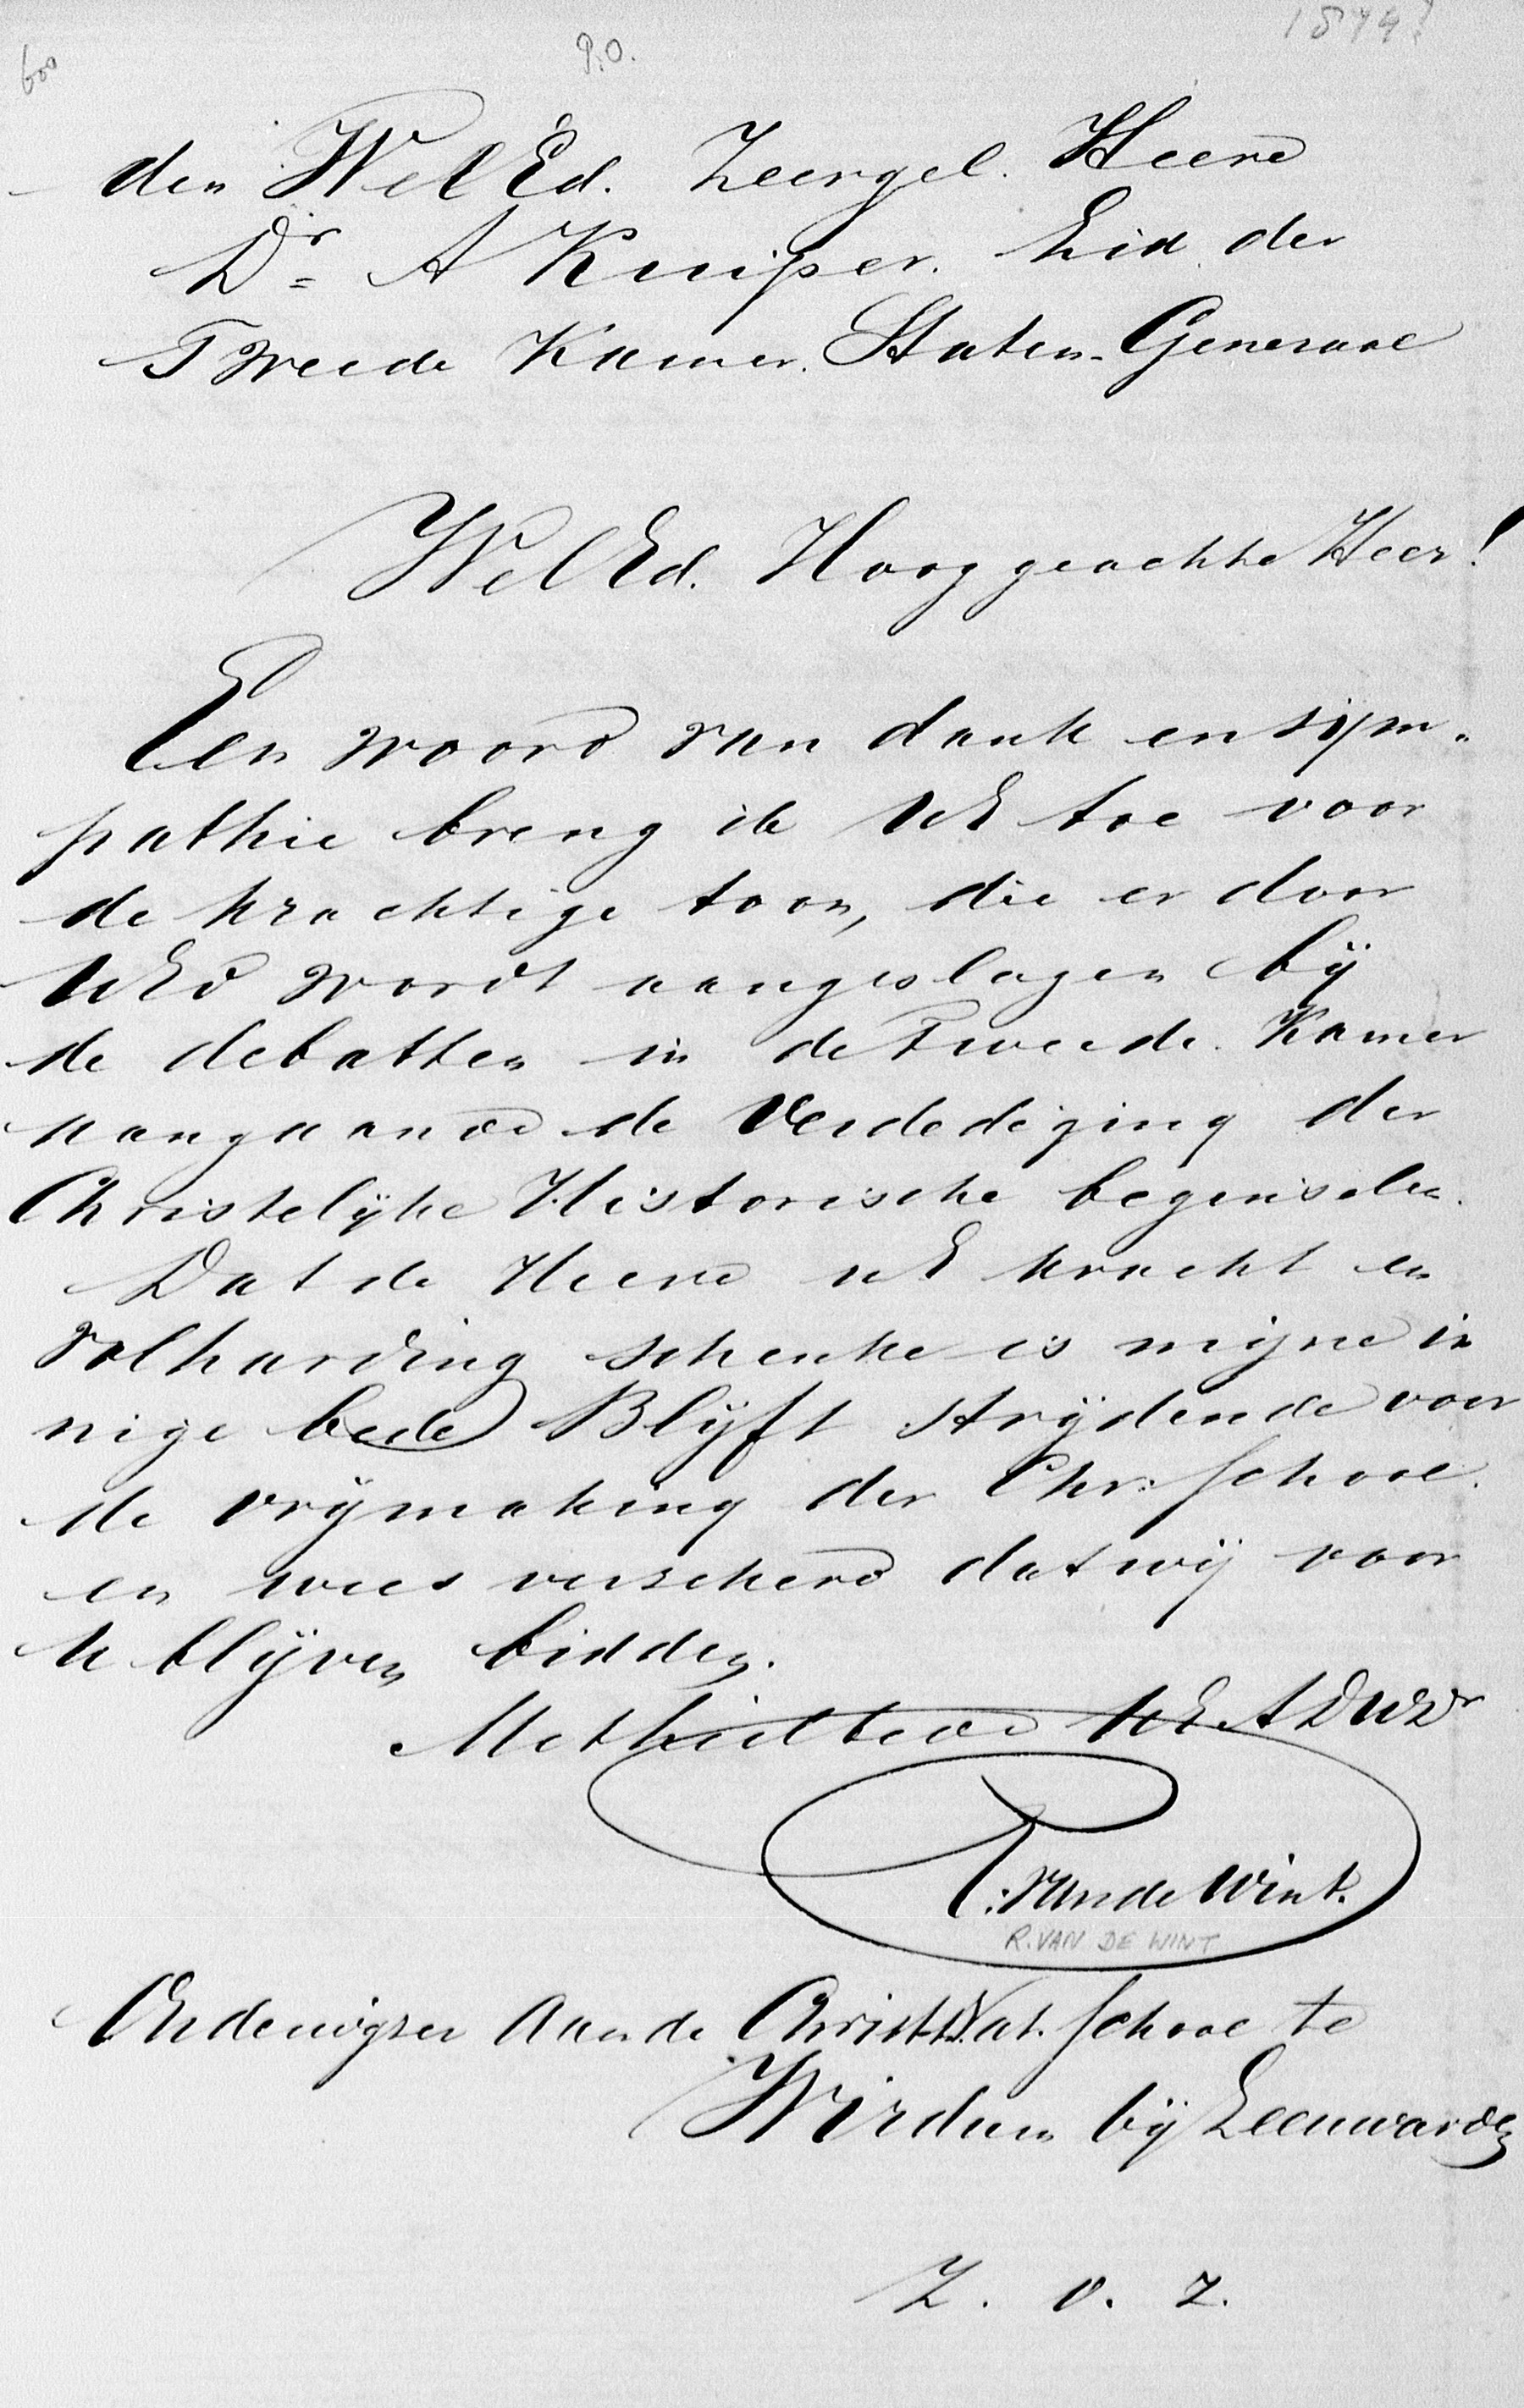 600
P.O.
1874?
den WelEd. Zeergel. Heere
Dr A Kuiper. Lid der
Tweede Kamer. Staten-Generaal
WelEd. Hooggeachte Heer!
Een woord van dank en sijm-
pathie breng ik UE toe voor
de krachtige toon, die er door
UEd wordt aangeslagen bij
de debatten in de Tweede Kamer
aangaande de Verdediging der
Christelijke Historische beginselen.
Dat de Heere uE kracht en
volharding schenke is mijne in
nige bede Blijft strijdende voor
de vrijmaking der Chr. School
en wees verzekerd dat wij voor
U blijven bidden.
Met heilbede UEADWDr
R. van de Wint.
R. VAN DE WINT
Onderwijzer aan de Christ. Nat. School te
Wirdum bij Leeuwarden
Z. O. Z.